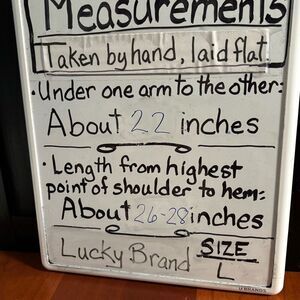 Measurements
Taken by hand, laid flat
• Under one arm to the other:
About 22 inches
• Length from highest
point of shoulder to hem:
About 26-28 inches
Lucky Brand
SIZE
L
U BRANDS